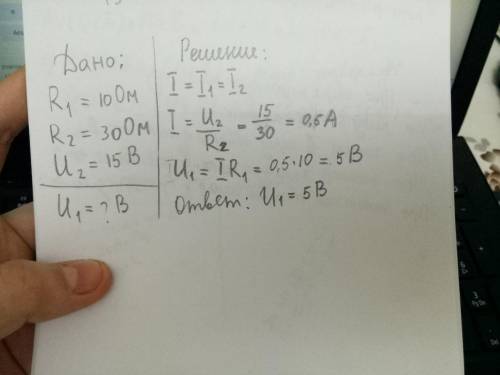 Дано:
R₁ = 10 Ом
R₂ = 30 Ом
U₂ = 15 В
U₁ = ? В
Решение:
I = I₁ = I₂
I = U₂/R₂ = 15/30 = 0,5А
U₁ = I R₁ = 0,5·10 = 5 В
Ответ: U₁ = 5В